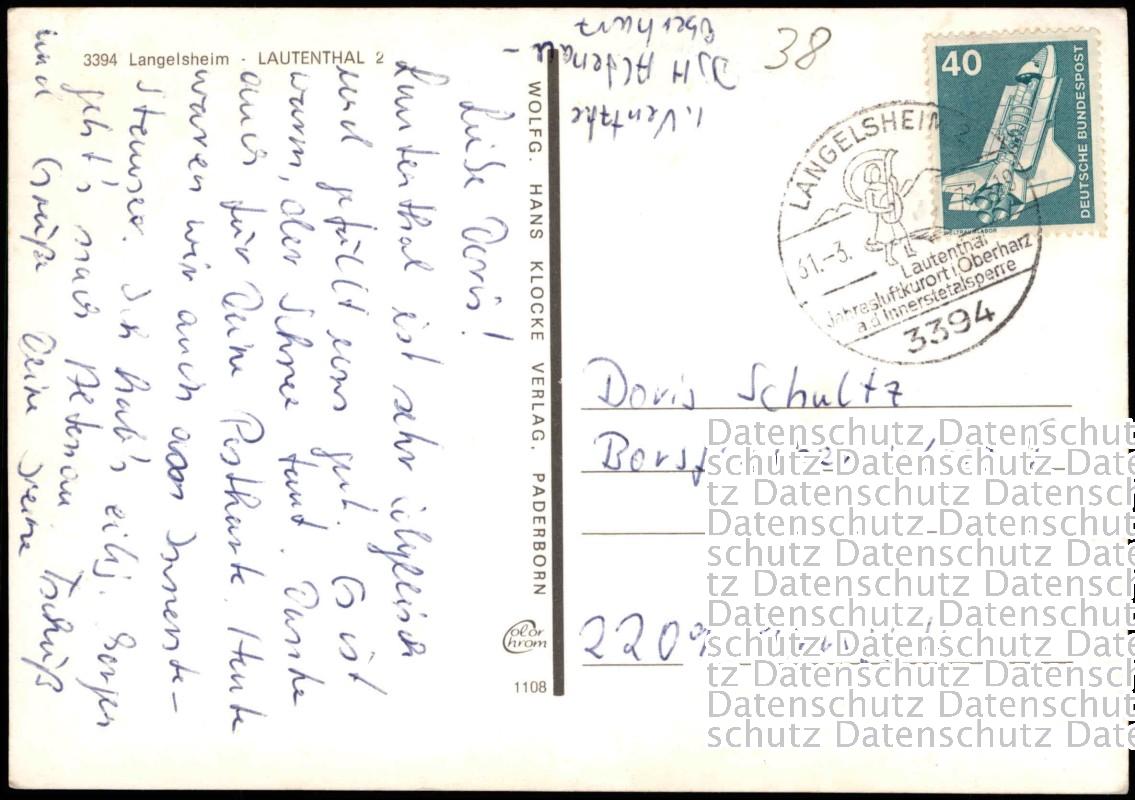 3394 Langelsheim - LAUTENTHAL 2
Liebe Doris!
Lautenthal ist sehr idyllisch
und gefällt uns gut. Es ist
warm, der Schnee taut. Danke
auch für Deine Postkarte. Heute
waren wir auch am Innerste-
Stausee. Ich hab's eilig. Morgen
geht's nach Altenau
und Grüße Deine Tschüß
WOLFG. HANS KLOCKE VERLAG, PADERBORN
Color
chrom
1108
I. Ventzke
DJH Altenau -
Oberharz
38
40
DEUTSCHE BUNDESPOST
WELTRAUMLABOR
LANGELSHEIM 2
31.-3.
Lautenthal
Jahresluftkurort i. Oberharz
a.d Innerstetalsperre
3394
Doris Schultz
Datenschutz Datenschut
Datenschutz Date
tz Datenschutz Datensc
Datenschutz Datenschut
schutz Datenschutz Date
tz Datenschutz Datensc
Datenschutz Datenschut
2209
schutz Datenschutz Date
tz Datenschutz Datensc
Datenschutz Datenschut
schutz Datenschutz Date